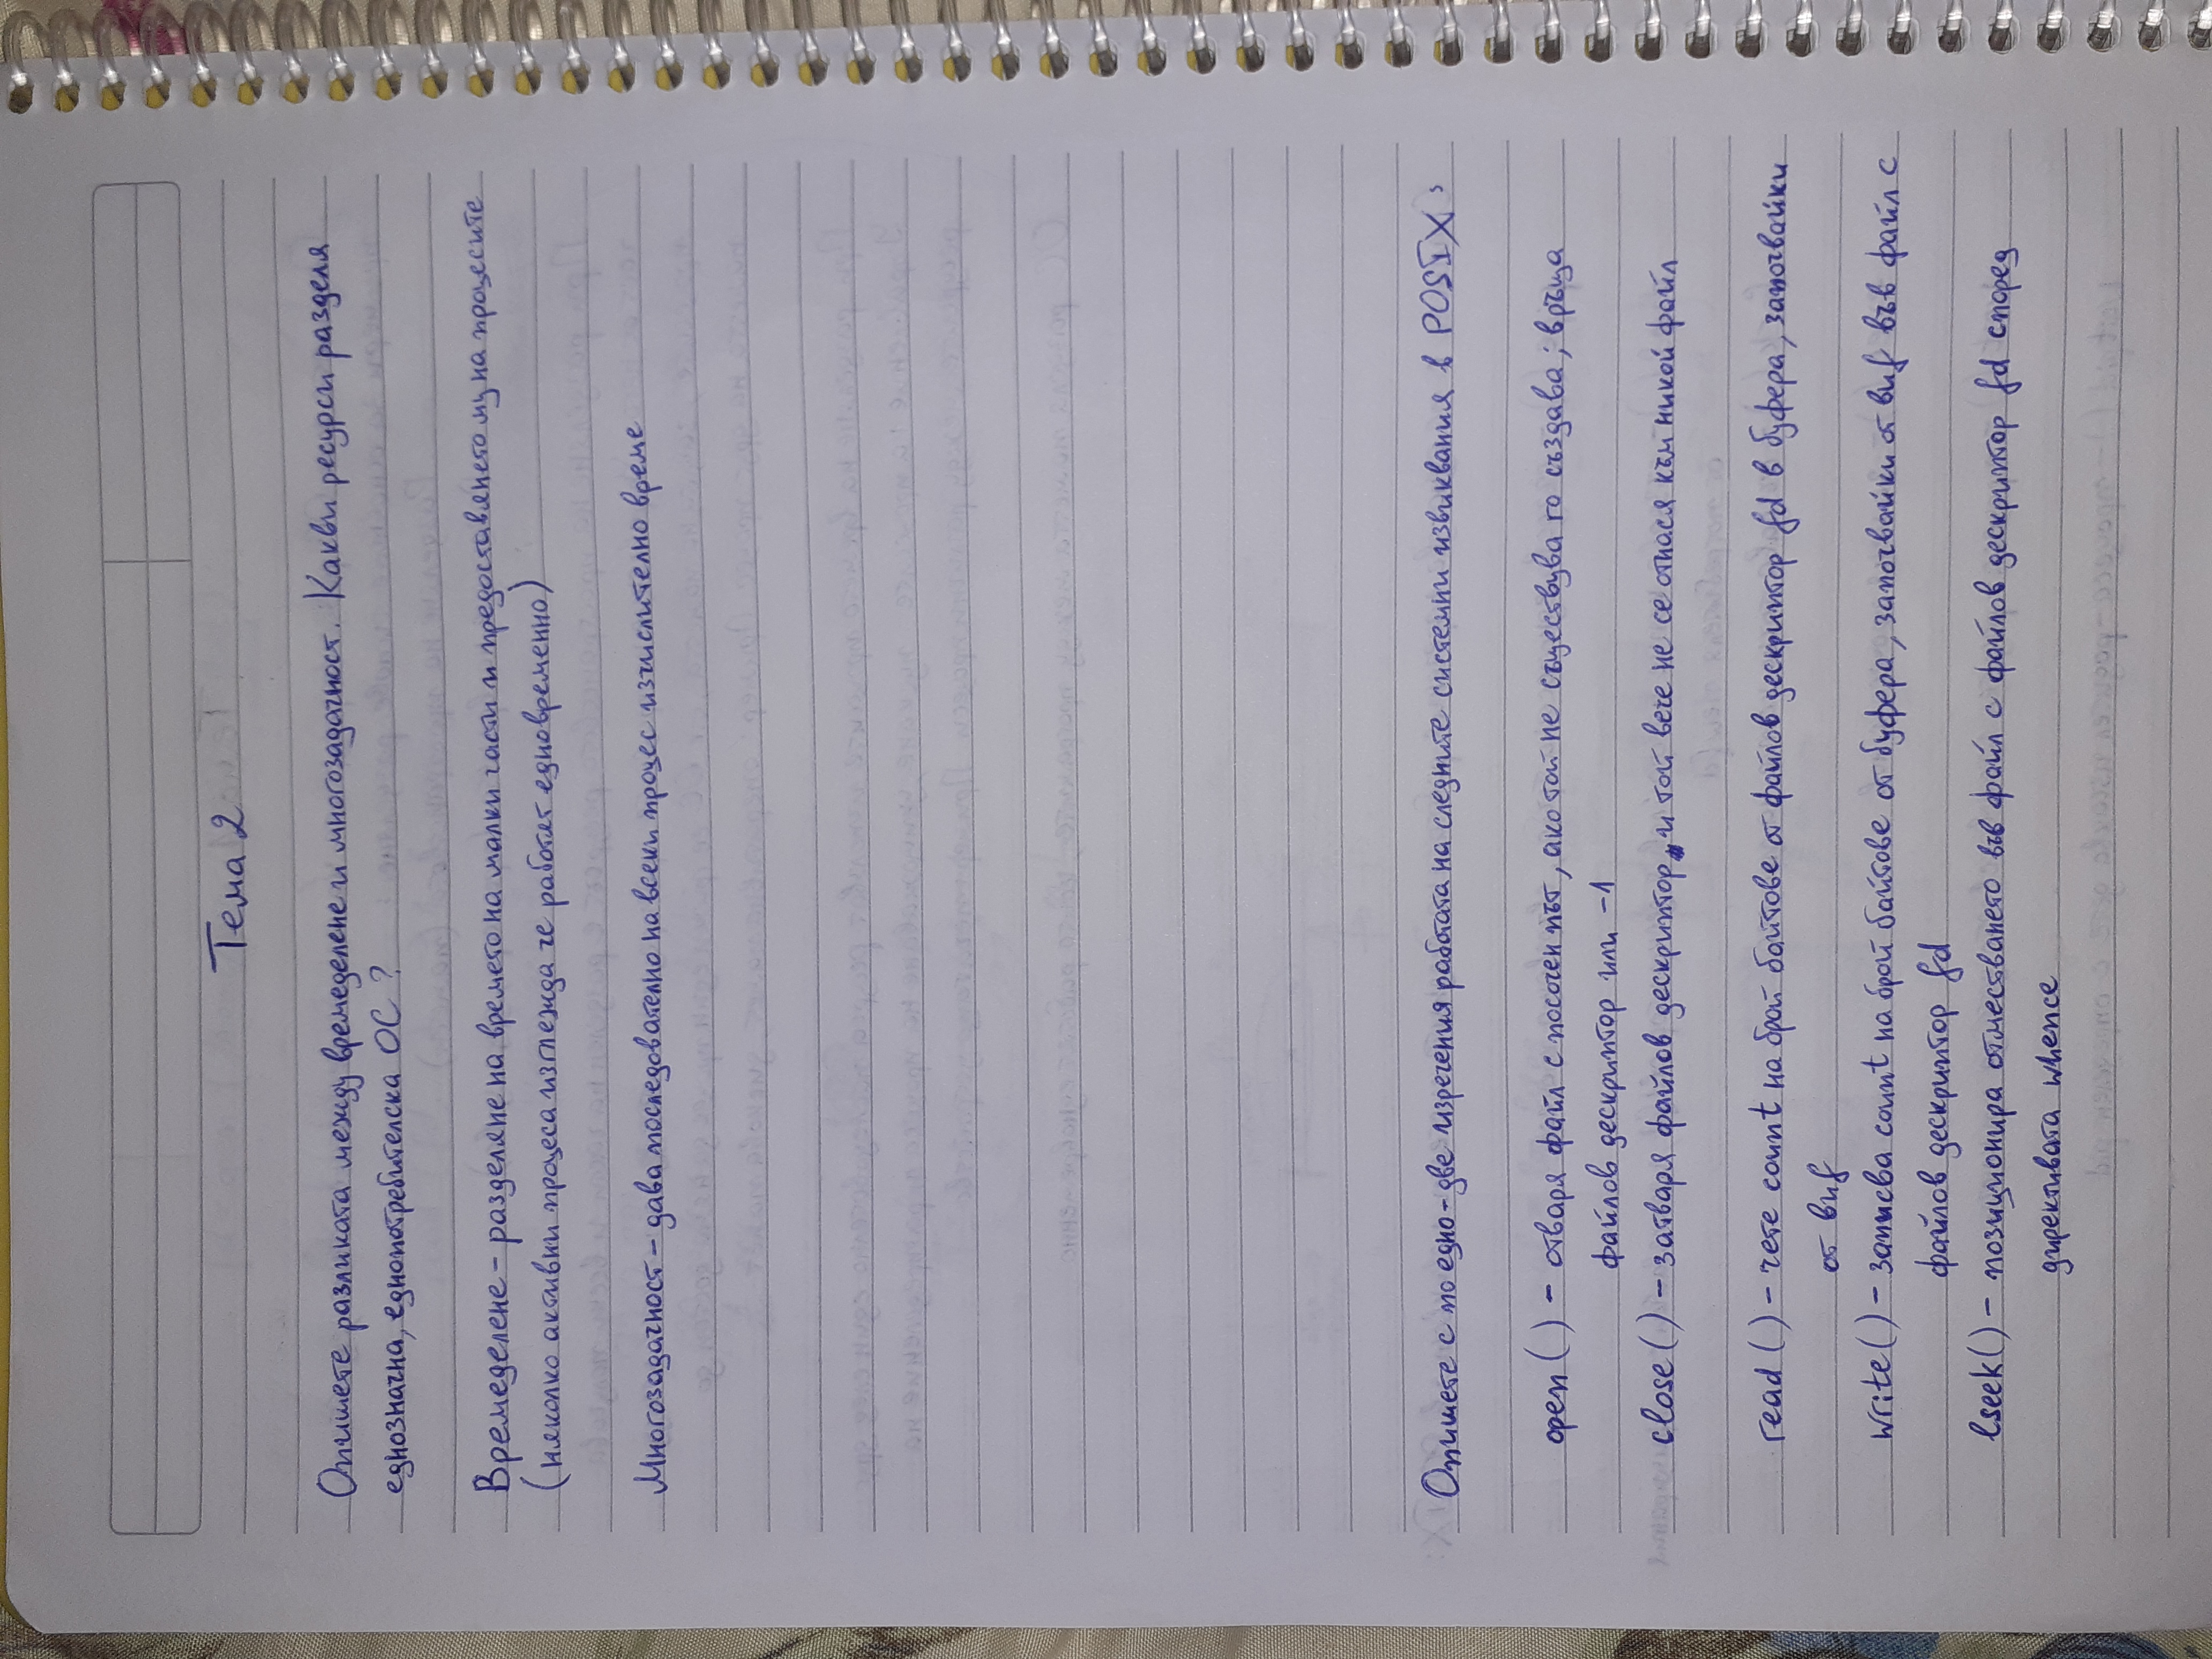 Тема 2
Опишете разликата между времеделене и многозадачност. Какви ресурси разделя
еднозначна, еднопотребителска ОС ?
Времеделене - разделяне на времето на малки части и предоставянето му на процесите
(няколко активни процеса изглежда че работят едновременно)
Многозадачност - дава последователно на всеки процес изчислително време
Опишете с по едно-две изречения работата на следните системни извиквания в POSIX :
open ( ) - отваря файл с посочен път, ако той не съществува го създава; връща
файлов дескриптор или -1
close ( ) - затваря файлов дескриптор и той вече не се отнася към никой файл
read ( ) - чете count на брой байтове от файлов дескриптор fd в буфера, започвайки
от buf
write ( ) - записва count на брой байтове от буфера, започвайки от buf във файл с
файлов дескриптор fd
lseek ( ) - позиционира отместването във файл с файлов дескриптор fd според
директивата whence